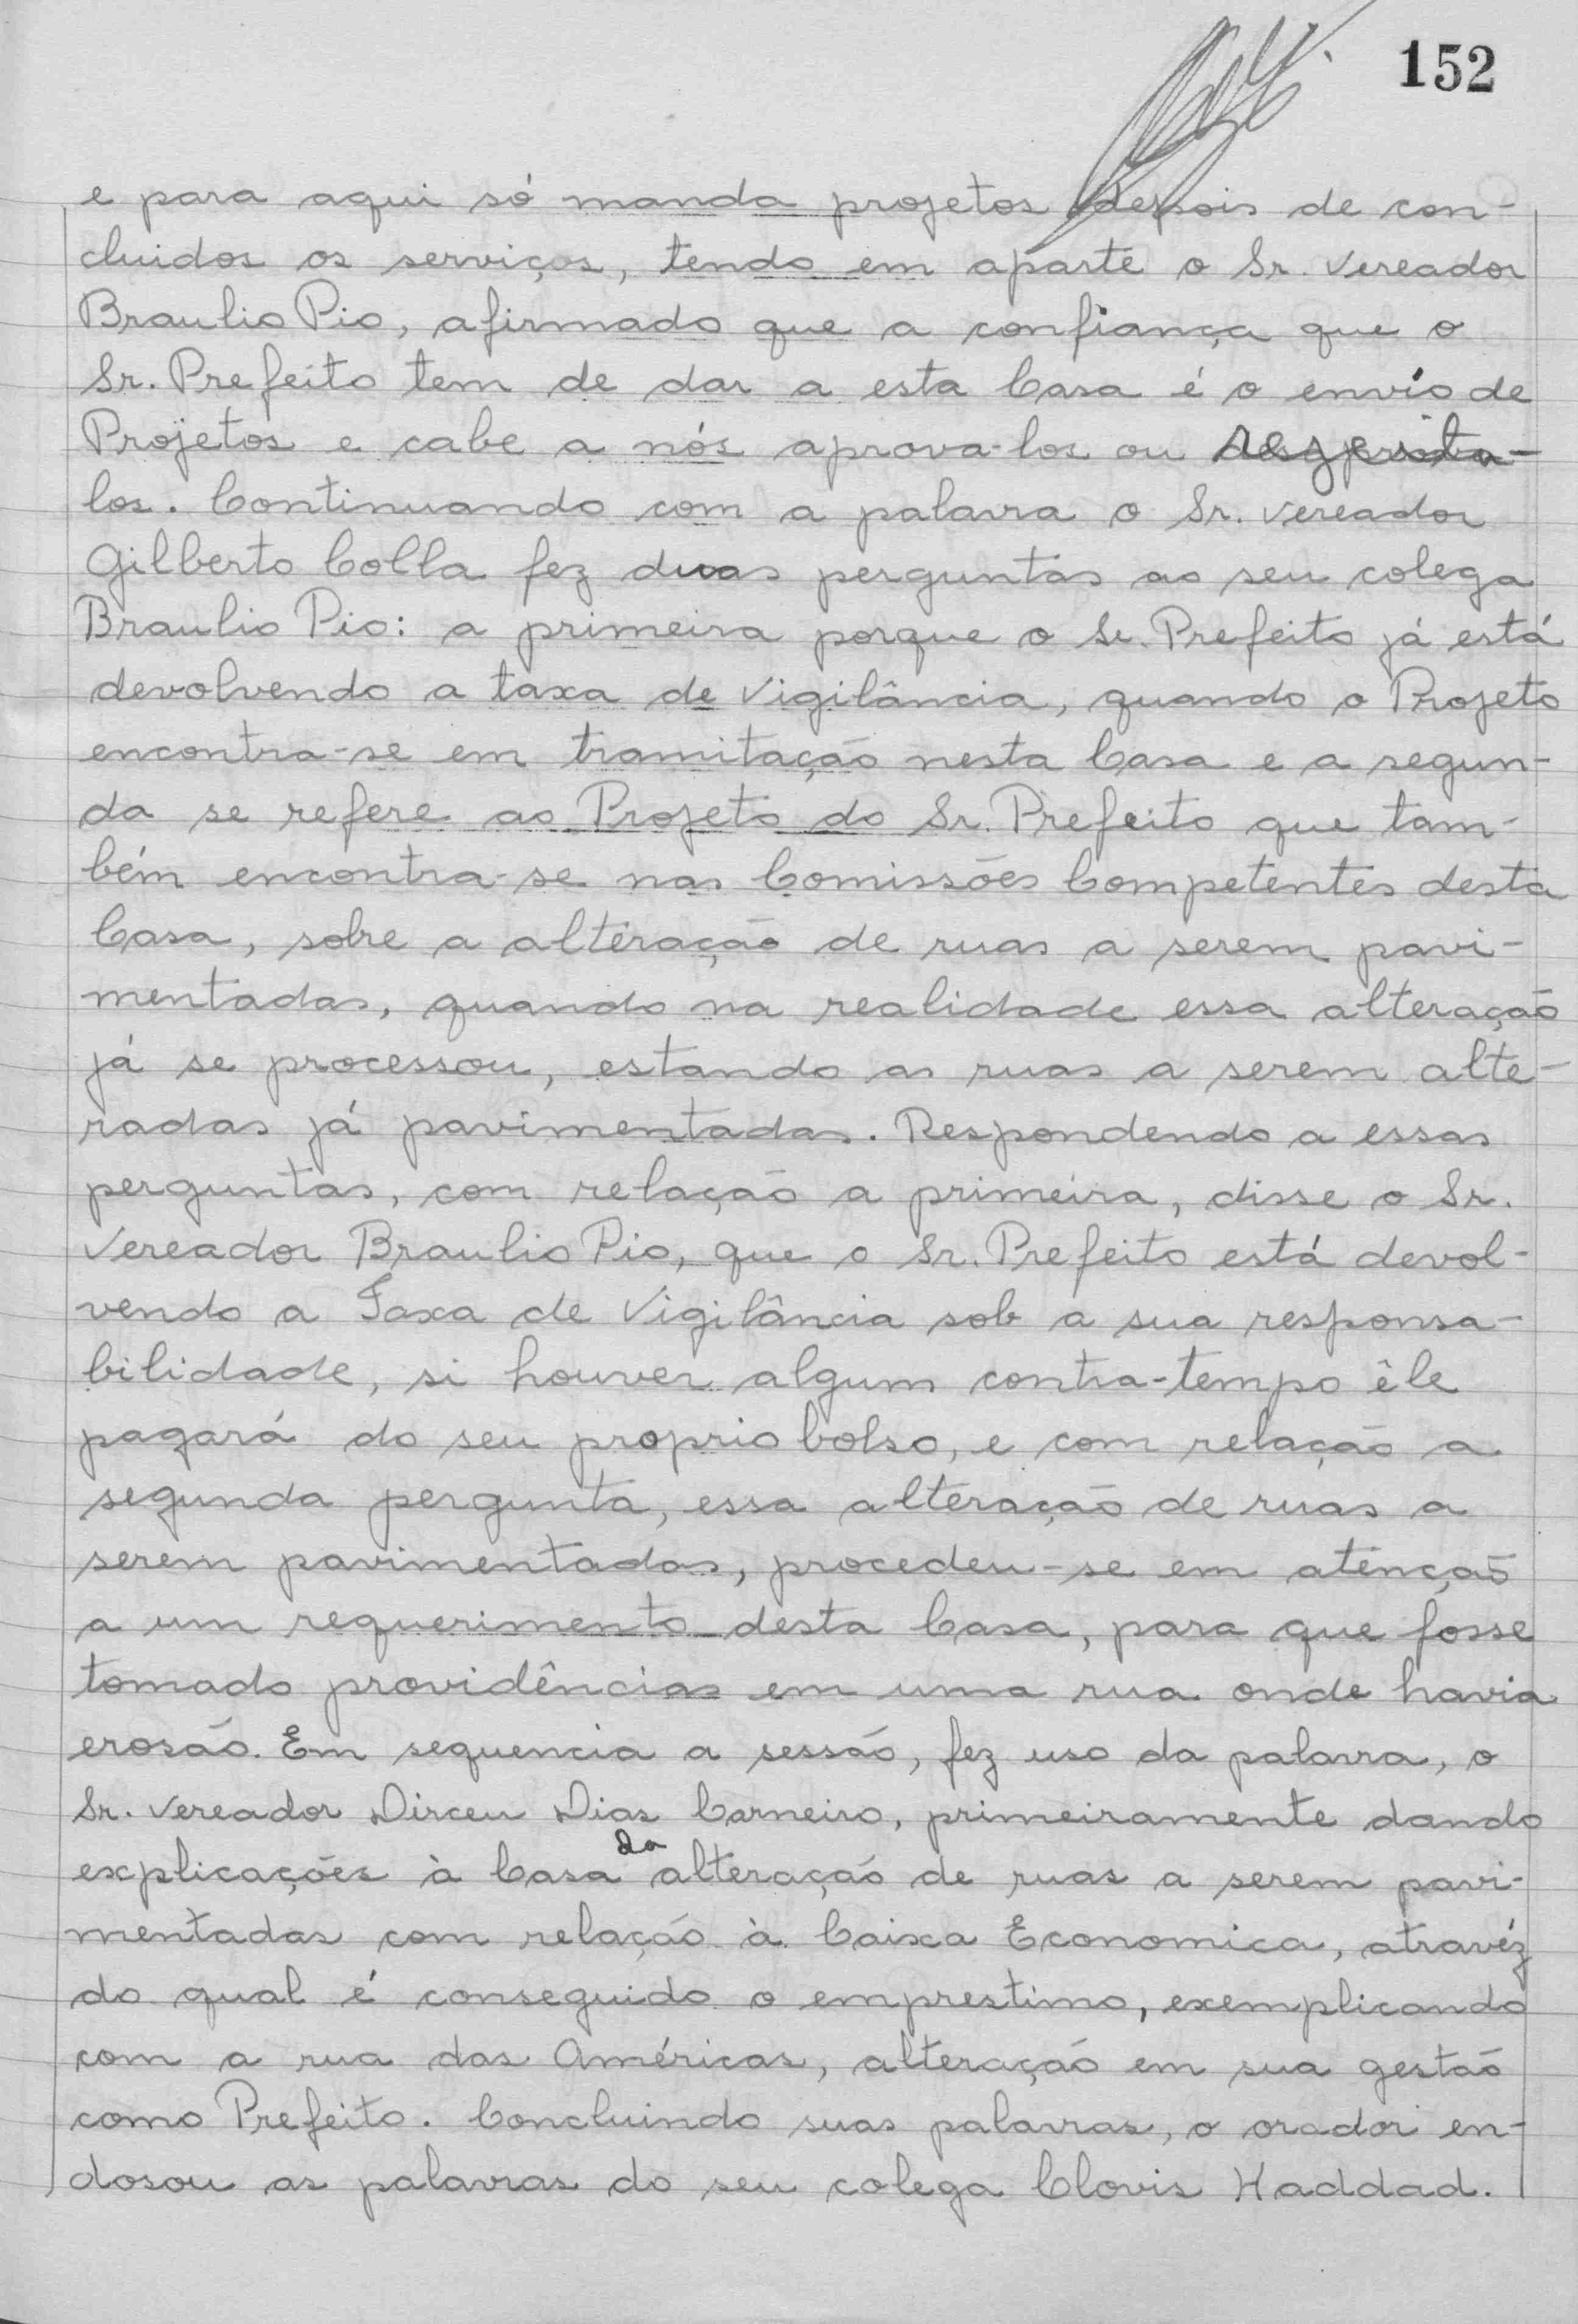 152
e para aqui só manda projetos depois de con-
cluidos os serviços, tendo em aparte o Sr. Vereador
Braulio Pio, afirmado que a confiança que o
Sr. Prefeito tem de dar a esta Casa é o envío de
Projetos e cabe a nós aprova-los ou
los. Continuando com a palavra o Sr. Vereador
Gilberto Colla fez duas perguntas ao seu colega
Braulio Pio: a primeira porque o Sr. Prefeito já está
devolvendo a taxa de Vigilância, quando o Projeto
encontra-se em tramitação nesta Casa e a segun-
da se refere ao Projeto do Sr. Prefeito que tam-
bém encontra-se nas Comissões Competentes desta
Casa, sobre a alteração de ruas a serem pavi-
mentadas, quando na realidade essa alteração
já se processou, estando as ruas a serem alte-
radas já pavimentadas. Respondendo a essas
perguntas, com relação a primeira, disse o Sr.
Vereador Braulio Pio, que o Sr. Prefeito está devol-
vendo a Taxa de Vigilância sob a sua responsa-
bilidade, si houver algum contra-tempo êle
pagará do seu proprio bolso, e com relação a
segunda pergunta, essa alteração de ruas a
serem pavimentadas, procedeu-se em atenção
a um requerimento desta Casa, para que fosse
tomado providências em uma rua onde havia
erosão. Em sequencia a sessão, fez uso da palavra, o
Sr. Vereador Dirceu Dias Carneiro, primeiramente dando
explicações à Casa da alteração de ruas a serem pavi-
mentadas com relação à Caixa Economica, atravéz
do qual é conseguido o emprestimo, exemplicando
com a rua das Américas, alteração em sua gestão
como Prefeito. Concluindo suas palavras, o orador en-
dosou as palavras do seu colega Clovis Haddad.